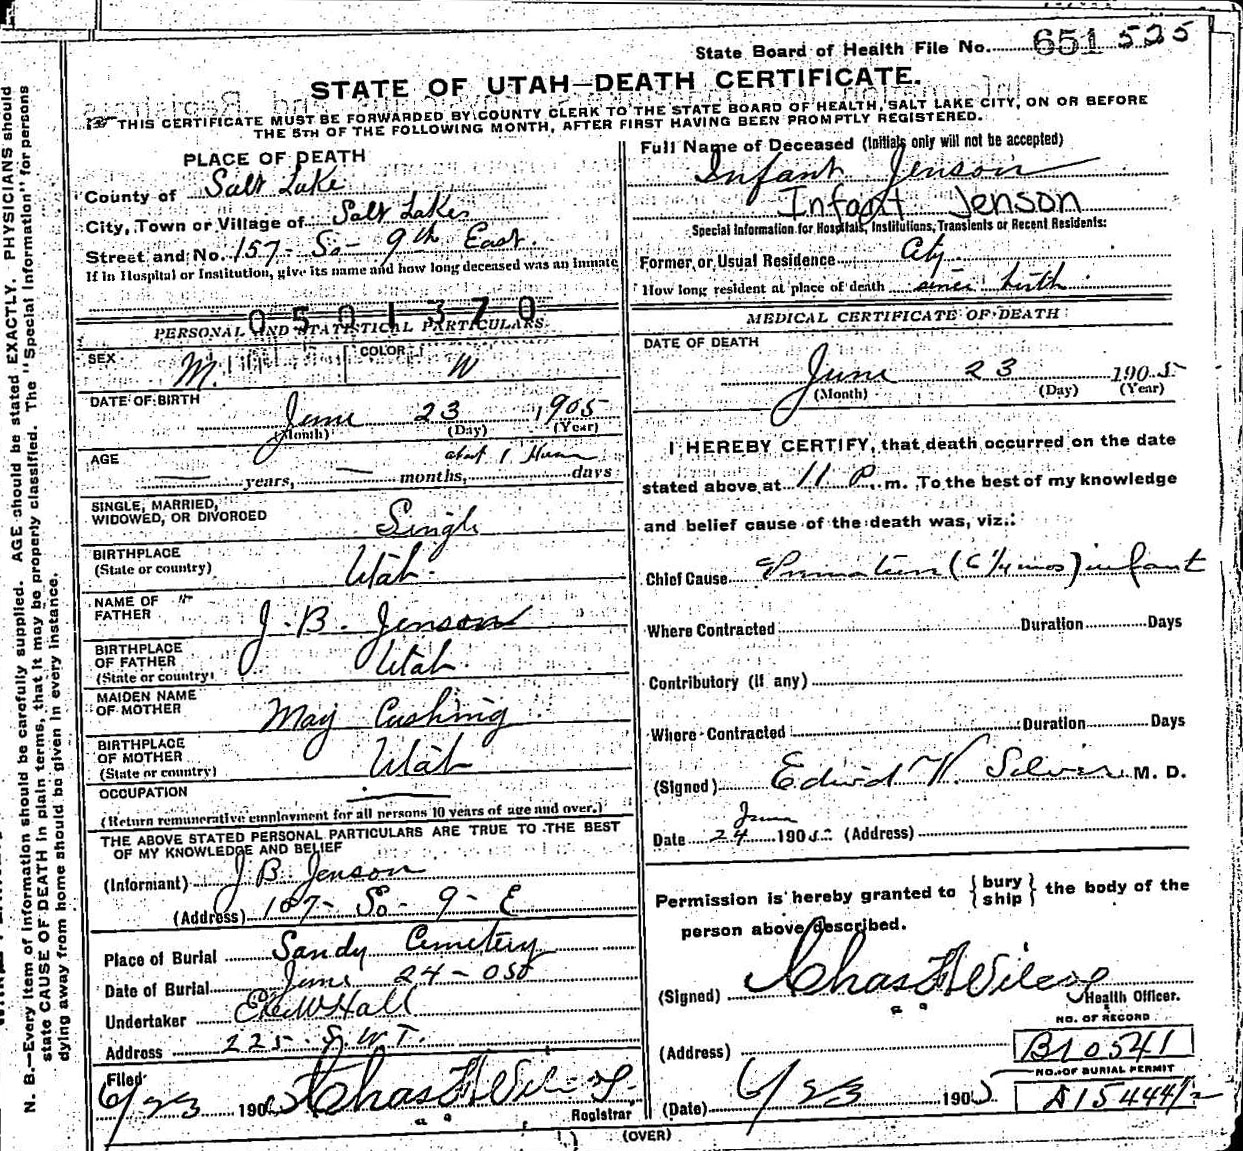 State Board of Health File No. 651 525
STATE OF UTAH—DEATH CERTIFICATE.
THIS CERTIFICATE MUST BE FORWARDED BY COUNTY CLERK TO THE STATE BOARD OF HEALTH, SALT LAKE CITY, ON OR BEFORE
THE 5TH OF THE FOLLOWING MONTH, AFTER FIRST HAVING BEEN PROMPTLY REGISTERED.
PLACE OF DEATH
County of Salt Lake
City, Town or Village of Salt Lake
Street and No. 157- So- 9th East.
If in Hospital or Institution, give its name and how long deceased was an inmate
0501370
PERSONAL AND STATISTICAL PARTICULARS.
SEX M. COLOR W
DATE OF BIRTH
June 23 1905
(Month) (Day) (Year)
AGE about 1 Hour
— years, — months, days
SINGLE, MARRIED,
WIDOWED, OR DIVORCED Single
BIRTHPLACE
(State or country) Utah.
NAME OF
FATHER J. B. Jenson
BIRTHPLACE
OF FATHER
(State or country) Utah
MAIDEN NAME
OF MOTHER May Cushing
BIRTHPLACE
OF MOTHER
(State or country) Utah
OCCUPATION —
(Return remunerative employment for all persons 10 years of age and over.)
THE ABOVE STATED PERSONAL PARTICULARS ARE TRUE TO THE BEST
OF MY KNOWLEDGE AND BELIEF
(Informant) J B Jenson
(Address) 157- So- 9- E
Place of Burial Sandy Cemetery
Date of Burial June 24-05
Undertaker Hall
Address 225- S. W. T.
Filed 6/23 1905 Chas Wilcox
Registrar
Full Name of Deceased (Initials only will not be accepted)
Infant Jenson
Infant Jenson
Special Information for Hospitals, Institutions, Transients or Recent Residents:
Former or Usual Residence City
How long resident at place of death since birth
MEDICAL CERTIFICATE OF DEATH
DATE OF DEATH
June 23 1905
(Month) (Day) (Year)
I HEREBY CERTIFY, that death occurred on the date
stated above at 11 P. m. To the best of my knowledge
and belief cause of the death was, viz.:
Chief Cause Premature (6 1/4 mos) infant
Where Contracted Duration Days
Contributory (if any)
Where Contracted Duration Days
(Signed) Silver M. D.
Date June 24 1905 (Address)
Permission is hereby granted to {bury ship} the body of the
person above described.
(Signed) Chas Wilcox
Health Officer.
NO. OF RECORD
(Address) B10541
NO. OF BURIAL PERMIT
(Date) 6/23 1905 A15444 1/2
(OVER)
N. B.—Every item of information should be carefully supplied. AGE should be stated EXACTLY. PHYSICIANS should
state CAUSE OF DEATH in plain terms, that it may be properly classified. The "Special Information" for persons
dying away from home should be given in every instance.